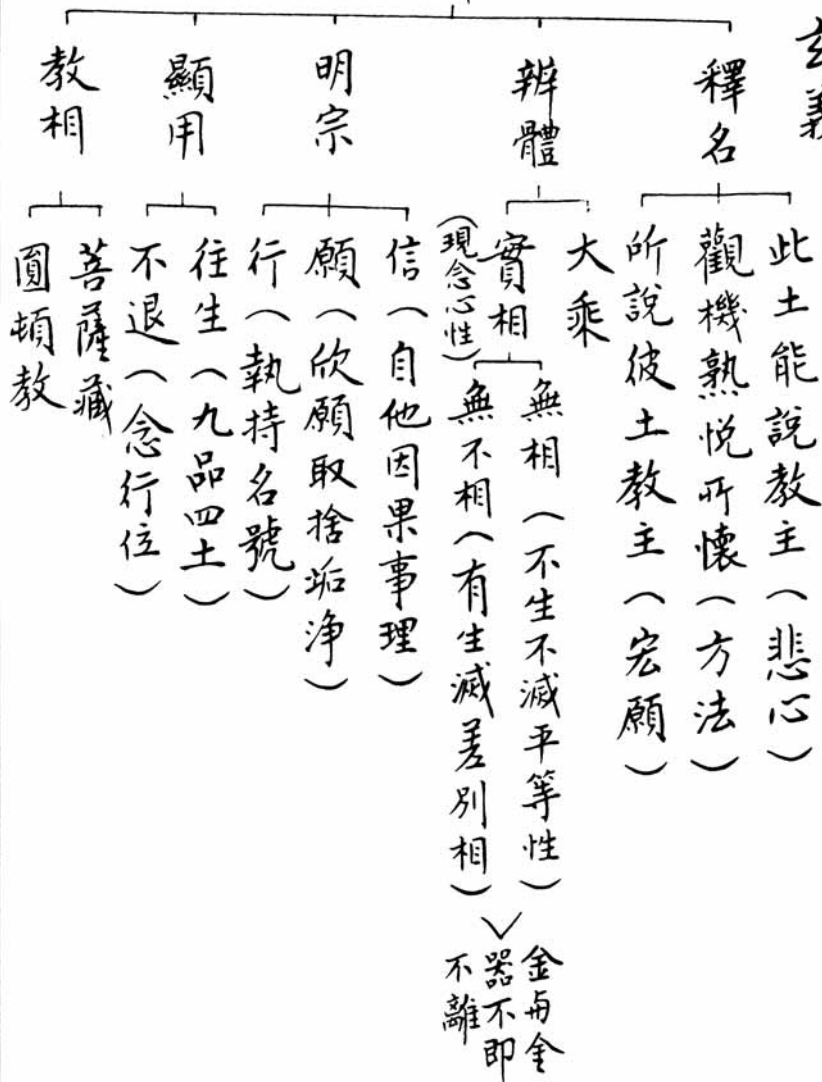 玄義
釋名
此土能說教主（悲心）
觀機熟悅所懷（方法）
所說彼土教主（宏願）
辨體
大乘
實相
（現念心性）
無相（不生不滅平等性）
無不相（有生滅差別相）
金與金
器不即
不離
明宗
信（自他因果事理）
願（欣願取捨垢淨）
行（執持名號）
顯用
往生（九品四土）
不退（念行位）
教相
菩薩藏
圓頓教